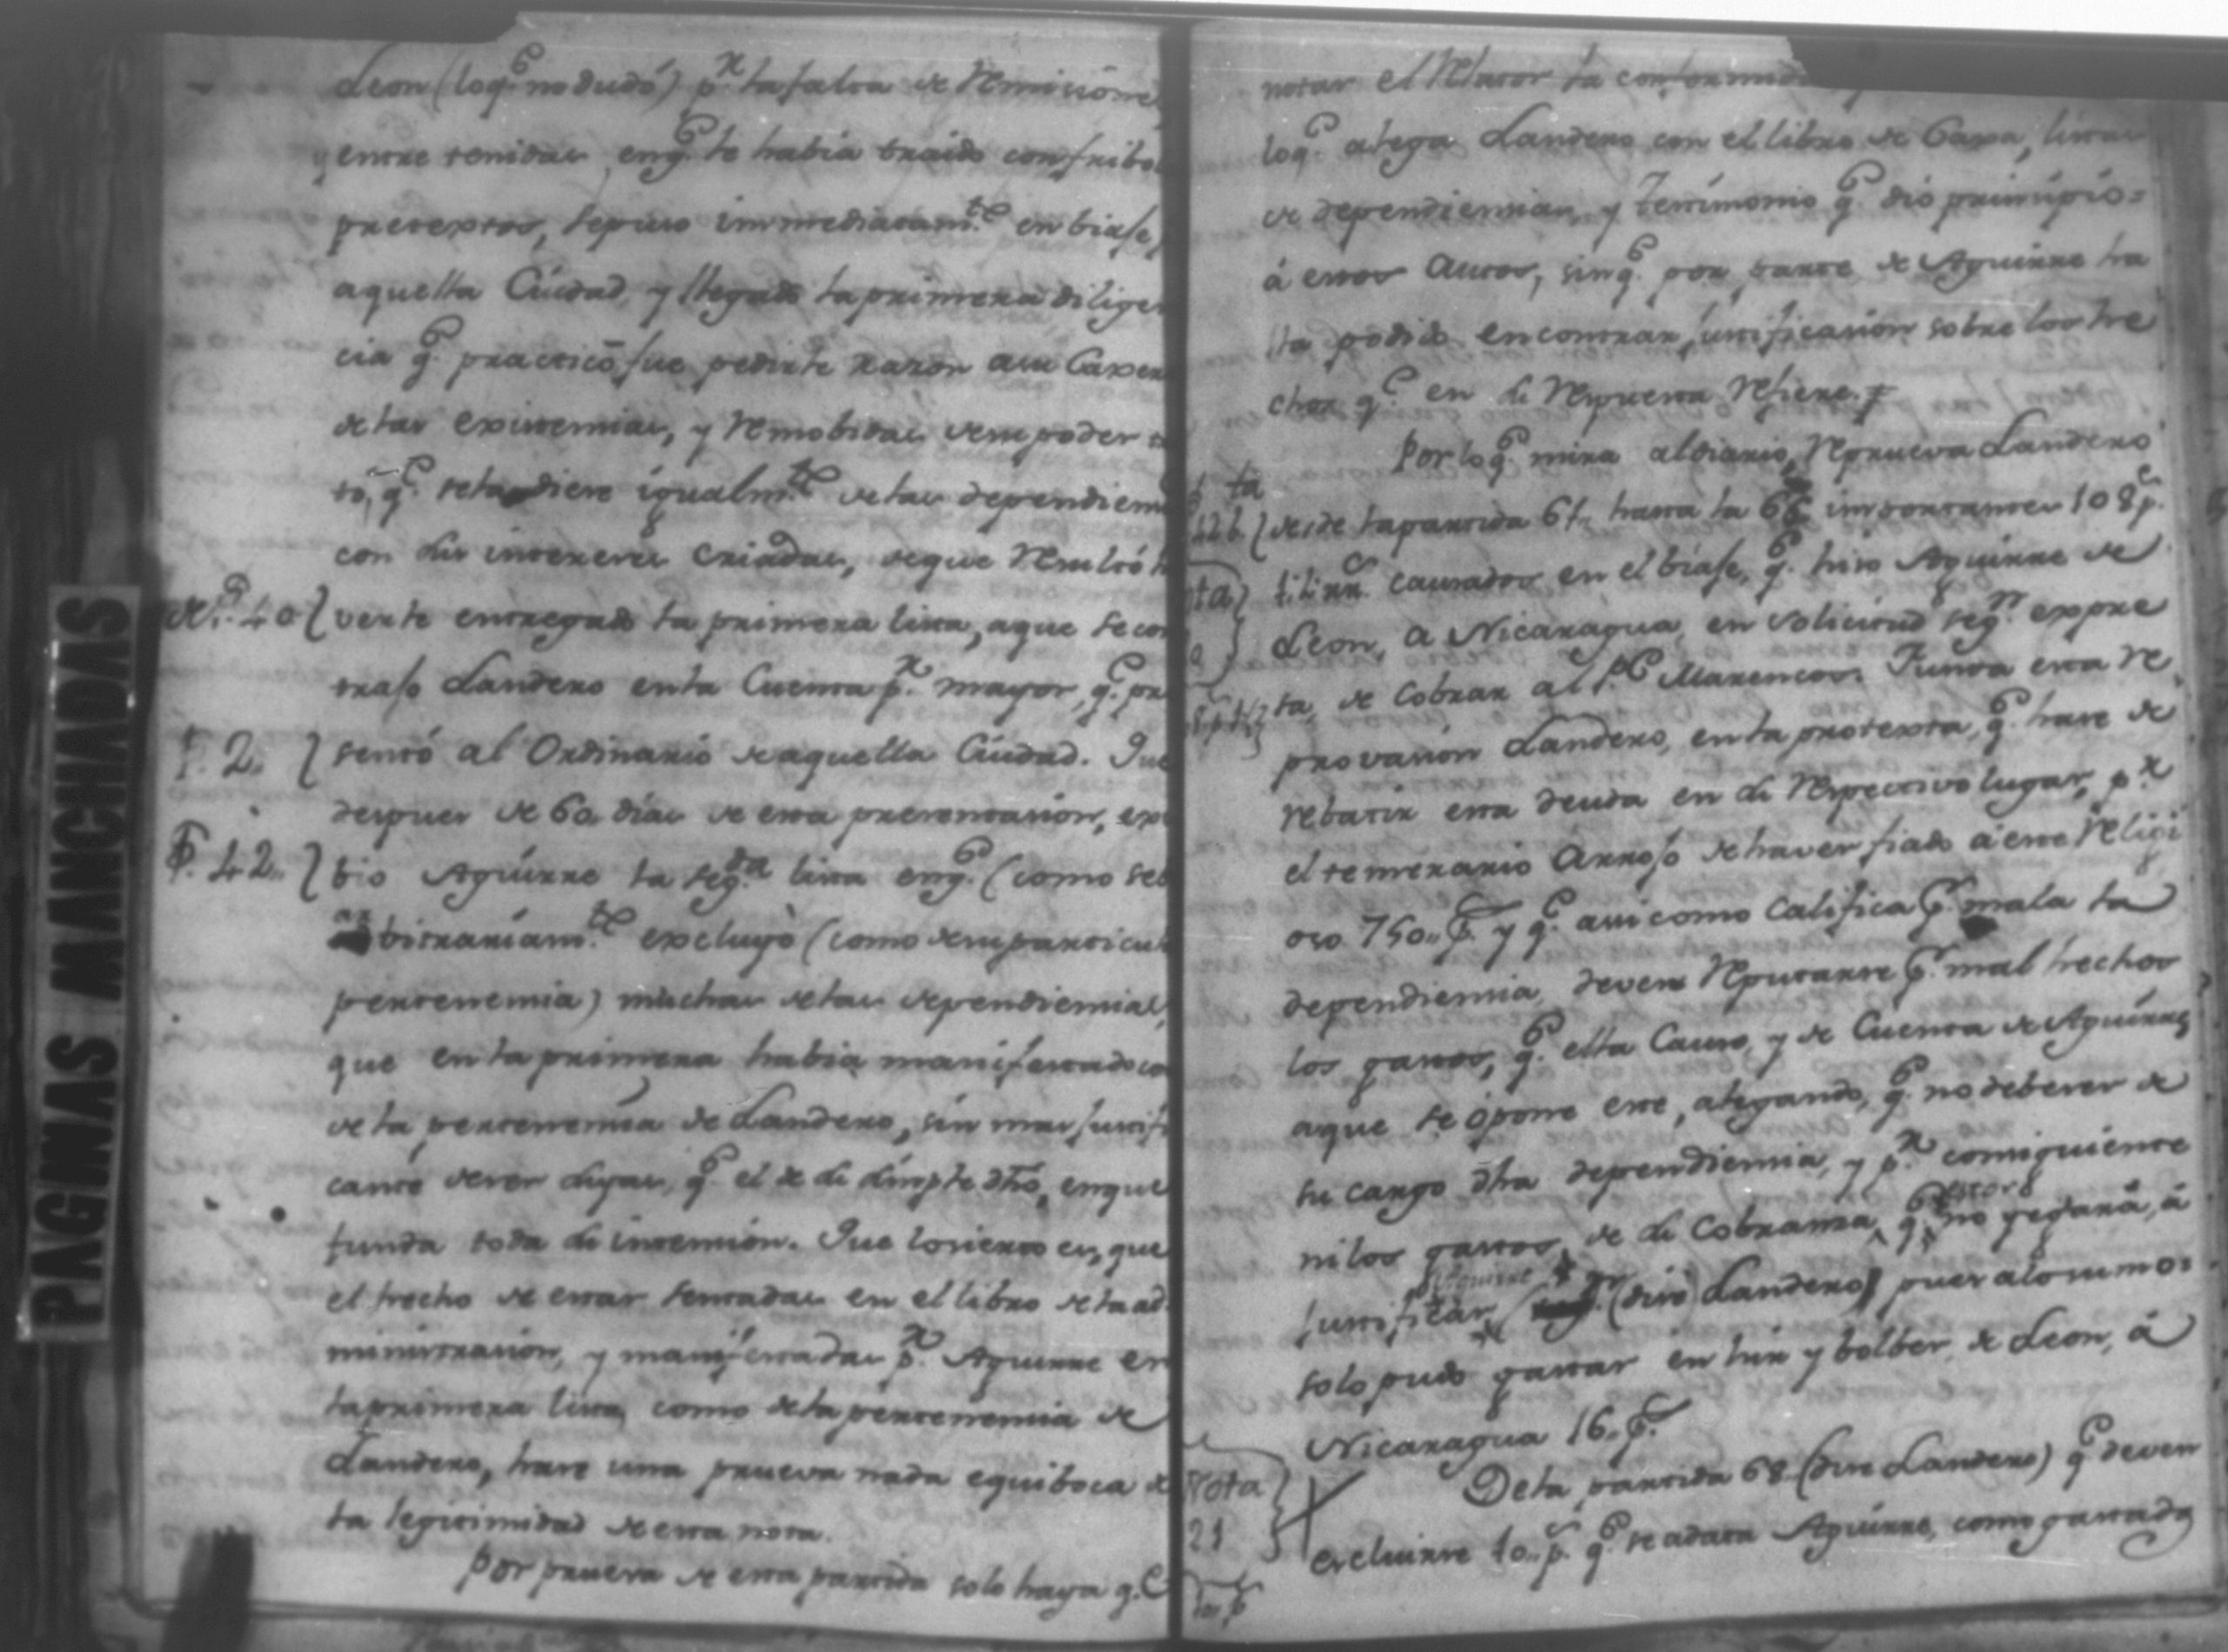 PAGINAS MANCHADAS
Leon (loq.e no dudó) p.r la falta de Remisiones
y entre tenidas, enq.e le habia traido con fribol
pretextos, se puso immediatam.te en biaje,
aquella Ciudad, y llegado la primera diligen
cia q.e practicó fue pedirle razon a su Caxer
de las existencias, y Remobidas de su poder
to, q.e se la diere igualm.te de las dependiem
con sus intereses Criadas, de que Resultó h
verle entregado la primera lista, a que se con
f.s 40
trajo Landero en la Cuenta p.r mayor, q.e pre
sentó al Ordinario de aquella Ciudad. Que
f. 2.
despues de 60 dias de esta presentacion, exi
bio Aguirre la seg.da lista enq.e (como se
f. 42.
bitrariam.te excluyò (como de su particul
pertenencia) muchas de las dependiencias,
que en la primera habia manifestado co
de la pertenencia de Landero, sin mas justifi
cante de ser suyas, q.e el de su simple dho, en que
funda toda su intencion. Que lo cierto es, que
el hecho de estar sentadas en el libro de la ad
ministracion, y manifestadas p.r Aguirre en
la primera lista, como de la pertenencia de
Landero, hace una prueva nada equiboca de
la legitimidad de esta nota.
Por prueva de esta partida solo haya q.e
notar el Relator la conformid
loq.e alega Landero con el libro de Caxa, listas
de dependiencias, y Testimonio q.e dió principio
á estos Autos, sin q.e por parte de Aguirre ha
lla podido encontrar justificacion sobre los he
chos q.e en su Respuesta Refiere.
Por lo q.e mira al diario, Reprueva Landero
desde la partida 61, hasta la 66 importantes 108 p.s
causados en el biaje, q.e hizo Aguirre de
Leon, a Nicaragua, en solicitud seg.n expre
sa, de Cobrar al P.e Marencos. Funda esta Re
provacion Landero, en la protexta, q.e hace de
rebatir esta deuda en su Respectivo lugar, p.r
el temerario Arrojo de haver fiado á este Religi
oso 750 p.s y q.e asi como Califica p.r mala la
dependiencia, deven Reputarse p.r mal hechos
los gastos, q.e ella Causo, y de Cuenta de Aguirre,
a que se opone este, alegando, q.e no deber ser de
su cargo dha dependiencia, y p.r consiguiente
ni los gastos, de su Cobranza, q.e no llegará, á
justificar Aguirre (dice Landero) pues a lo sumo
solo pudo gastar en hir y bolber de Leon, á
Nicaragua 16 p.s
Nota
21
De la partida 68 (dice Landero) q.e deven
excluirse 10 p.s q.e se adata Aguirre, como gastado